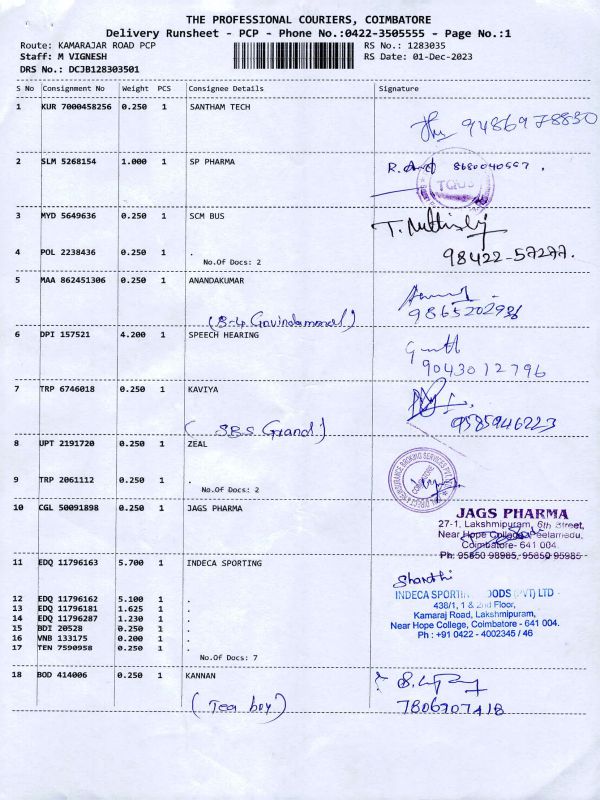 THE PROFESSIONAL COURIERS, COIMBATORE
Delivery Runsheet - PCP - Phone No.:0422-3505555 - Page No.:1
Route: KAMARAJAR ROAD PCP RS No.: 1283035
Staff: M VIGNESH RS Date: 01-Dec-2023
DRS No.: DCJB128303501
S No Consignment No Weight PCS Consignee Details Signature
1 KUR 7000458256 0.250 1 SANTHAM TECH
9486978830
2 SLM 5268154 1.000 1 SP PHARMA
8680040557.
3 MYD 5649636 0.250 1 SCM BUS
4 POL 2238436 0.250 1 .
No.Of Docs: 2
98422-57277.
5 MAA 862451306 0.250 1 ANANDAKUMAR
9865202996
6 DPI 157521 4.200 1 SPEECH HEARING
9043012796
7 TRP 6746018 0.250 1 KAVIYA
9585946223
(SBS Grand)
8 UPT 2191720 0.250 1 ZEAL
9 TRP 2061112 0.250 1 .
No.Of Docs: 2
10 CGL 50091898 0.250 1 JAGS PHARMA
JAGS PHARMA
27-1, Lakshmipuram, 6th Street,
Near Hope College, Peelamedu,
Coimbatore- 641 004.
Ph: 95850 98985, 95850 95985
11 EDQ 11796163 5.700 1 INDECA SPORTING
Sharathi
12 EDQ 11796162 5.100 1 .
13 EDQ 11796181 1.625 1 .
14 EDQ 11796287 1.230 1 .
15 BDI 20528 0.250 1 .
16 VNB 133175 0.200 1 .
17 TEN 7590958 0.250 1 .
No.Of Docs: 7
INDECA SPORTING GOODS (PVT) LTD -
438/1, 1 & 2nd Floor,
Kamaraj Road, Lakshmipuram,
Near Hope College, Coimbatore - 641 004.
Ph : +91 0422 - 4002345 / 46
18 BOD 414006 0.250 1 KANNAN
(Tea boy)
7806707418